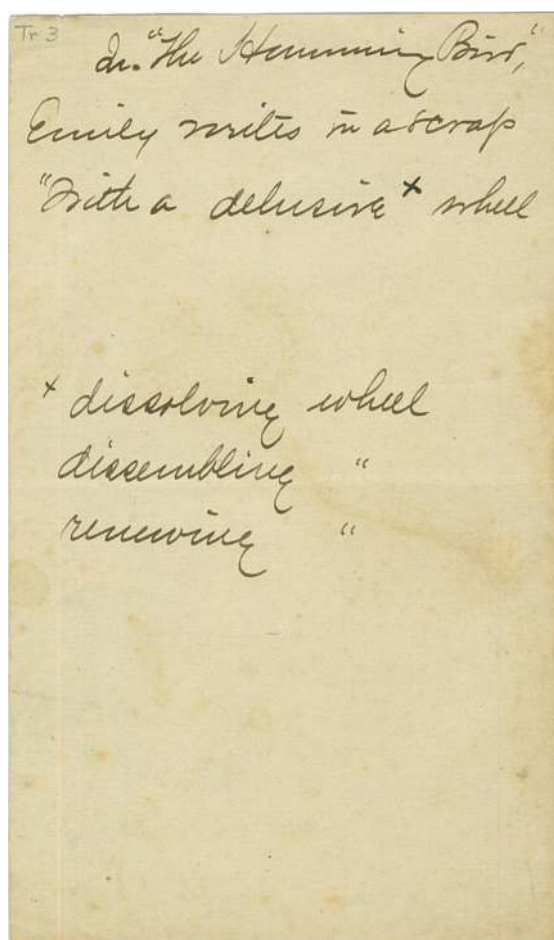 Tr 3
In "The Humming Bird",
Emily writes in a scrap
"With a delusive x wheel
x dissolving wheel
dissembling "
renewing "